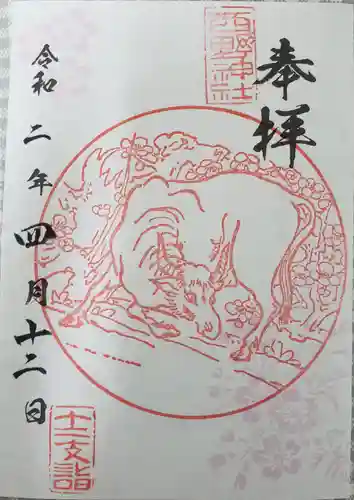 奉拝
令和二年四月十二日
十二支詣